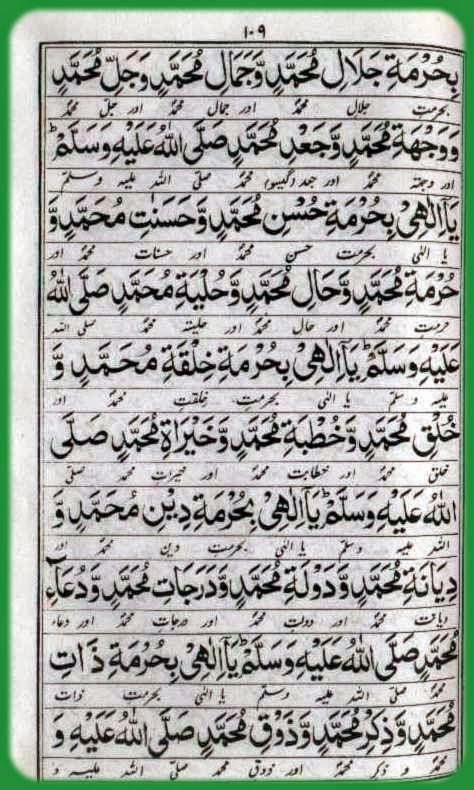 ١٠٩
بِحُرْمَةِ جَلَالِ مُحَمَّدٍ وَّجَمَالِ مُحَمَّدٍ وَّجَلِّ مُحَمَّدٍ
بحرمت جلال محمدؐ اور جمال محمدؐ اور جل محمدؐ
وَوَجْهَةِ مُحَمَّدٍ وَّجَعْدِ مُحَمَّدٍ صَلَّى اللهُ عَلَيْهِ وَسَلَّمَ ؕ
اور وجہتہ محمدؐ اور جعد (گیسو) محمدؐ صلی اللہ علیہ وسلم
يَآ اِلٰهِيْ بِحُرْمَةِ حُسْنِ مُحَمَّدٍ وَّحَسَنٰتِ مُحَمَّدٍ وَّ
یا الٰہی بحرمت حسن محمدؐ اور حسنات محمدؐ اور
حُرْمَةِ مُحَمَّدٍ وَّحَالِ مُحَمَّدٍ وَّحُلْيَةِ مُحَمَّدٍ صَلَّى اللهُ
حرمت محمدؐ اور حال محمدؐ اور حلیتہ محمدؐ صلی اللہ
عَلَيْهِ وَسَلَّمَ ؕ يَآ اِلٰهِيْ بِحُرْمَةِ خِلْقَةِ مُحَمَّدٍ وَّ
علیہ وسلم یا الٰہی بحرمت خلقت محمدؐ اور
خُلْقِ مُحَمَّدٍ وَّخُطْبَةِ مُحَمَّدٍ وَّخَيْرَاةِ مُحَمَّدٍ صَلَّى
خلق محمدؐ اور خطابت محمدؐ اور خیرات محمدؐ صلی
اللهُ عَلَيْهِ وَسَلَّمَ ؕ يَآ اِلٰهِيْ بِحُرْمَةِ دِيْنِ مُحَمَّدٍ وَّ
اللہ علیہ وسلم یا الٰہی بحرمت دین محمدؐ اور
دِيَانَةِ مُحَمَّدٍ وَّدَوْلَةِ مُحَمَّدٍ وَّدَرَجَاتِ مُحَمَّدٍ وَّدُعَآءِ
دیانت محمدؐ اور دولت محمدؐ اور درجات محمدؐ اور دعاء
مُحَمَّدٍ صَلَّى اللهُ عَلَيْهِ وَسَلَّمَ ؕ يَآ اِلٰهِيْ بِحُرْمَةِ ذَاتِ
محمدؐ صلی اللہ علیہ وسلم یا الٰہی بحرمت ذات
مُحَمَّدٍ وَّذِكْرِ مُحَمَّدٍ وَّذَوْقِ مُحَمَّدٍ صَلَّى اللهُ عَلَيْهِ وَ
محمدؐ و ذکر محمدؐ اور ذوق محمدؐ صلی اللہ علیہ و